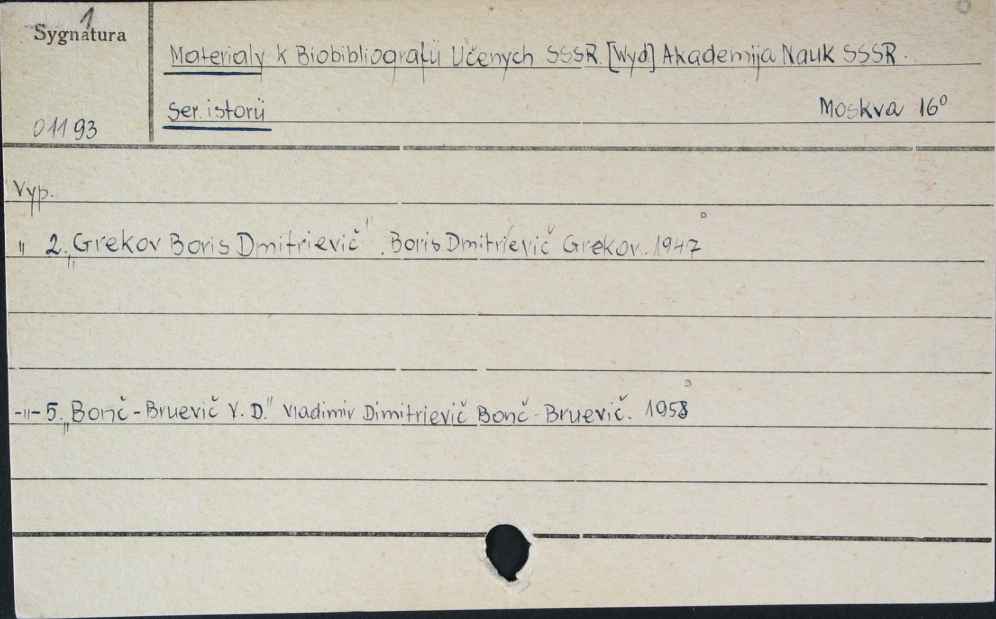 1
Sygnatura
Materialy k Biobibliografii Učenych SSSR. [Wyd] Akademija Nauk SSSR.
Ser. istorii Moskva 16°
01193
Vyp.
" 2. „Grekov Boris Dmitrievič". Boris Dmitrievič Grekov. 1947
-"- 5. „Bonč-Bruevič V. D." Vladimir Dimitrievič Bonč-Bruevič. 1958